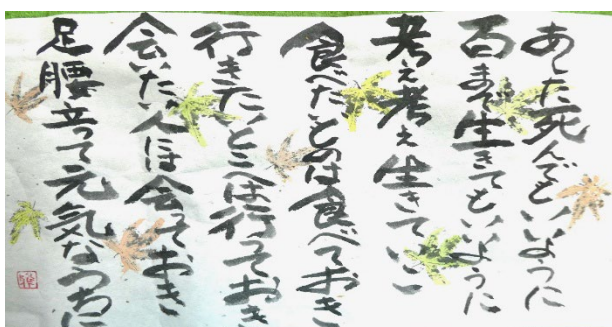 あした死んでもいいように
百まで生きてもいいように
考え考え生きてい
食べたいものは食べておき
行きたいとこへは行っておき
会いたい人には会っておき
足腰立って元気なうちに